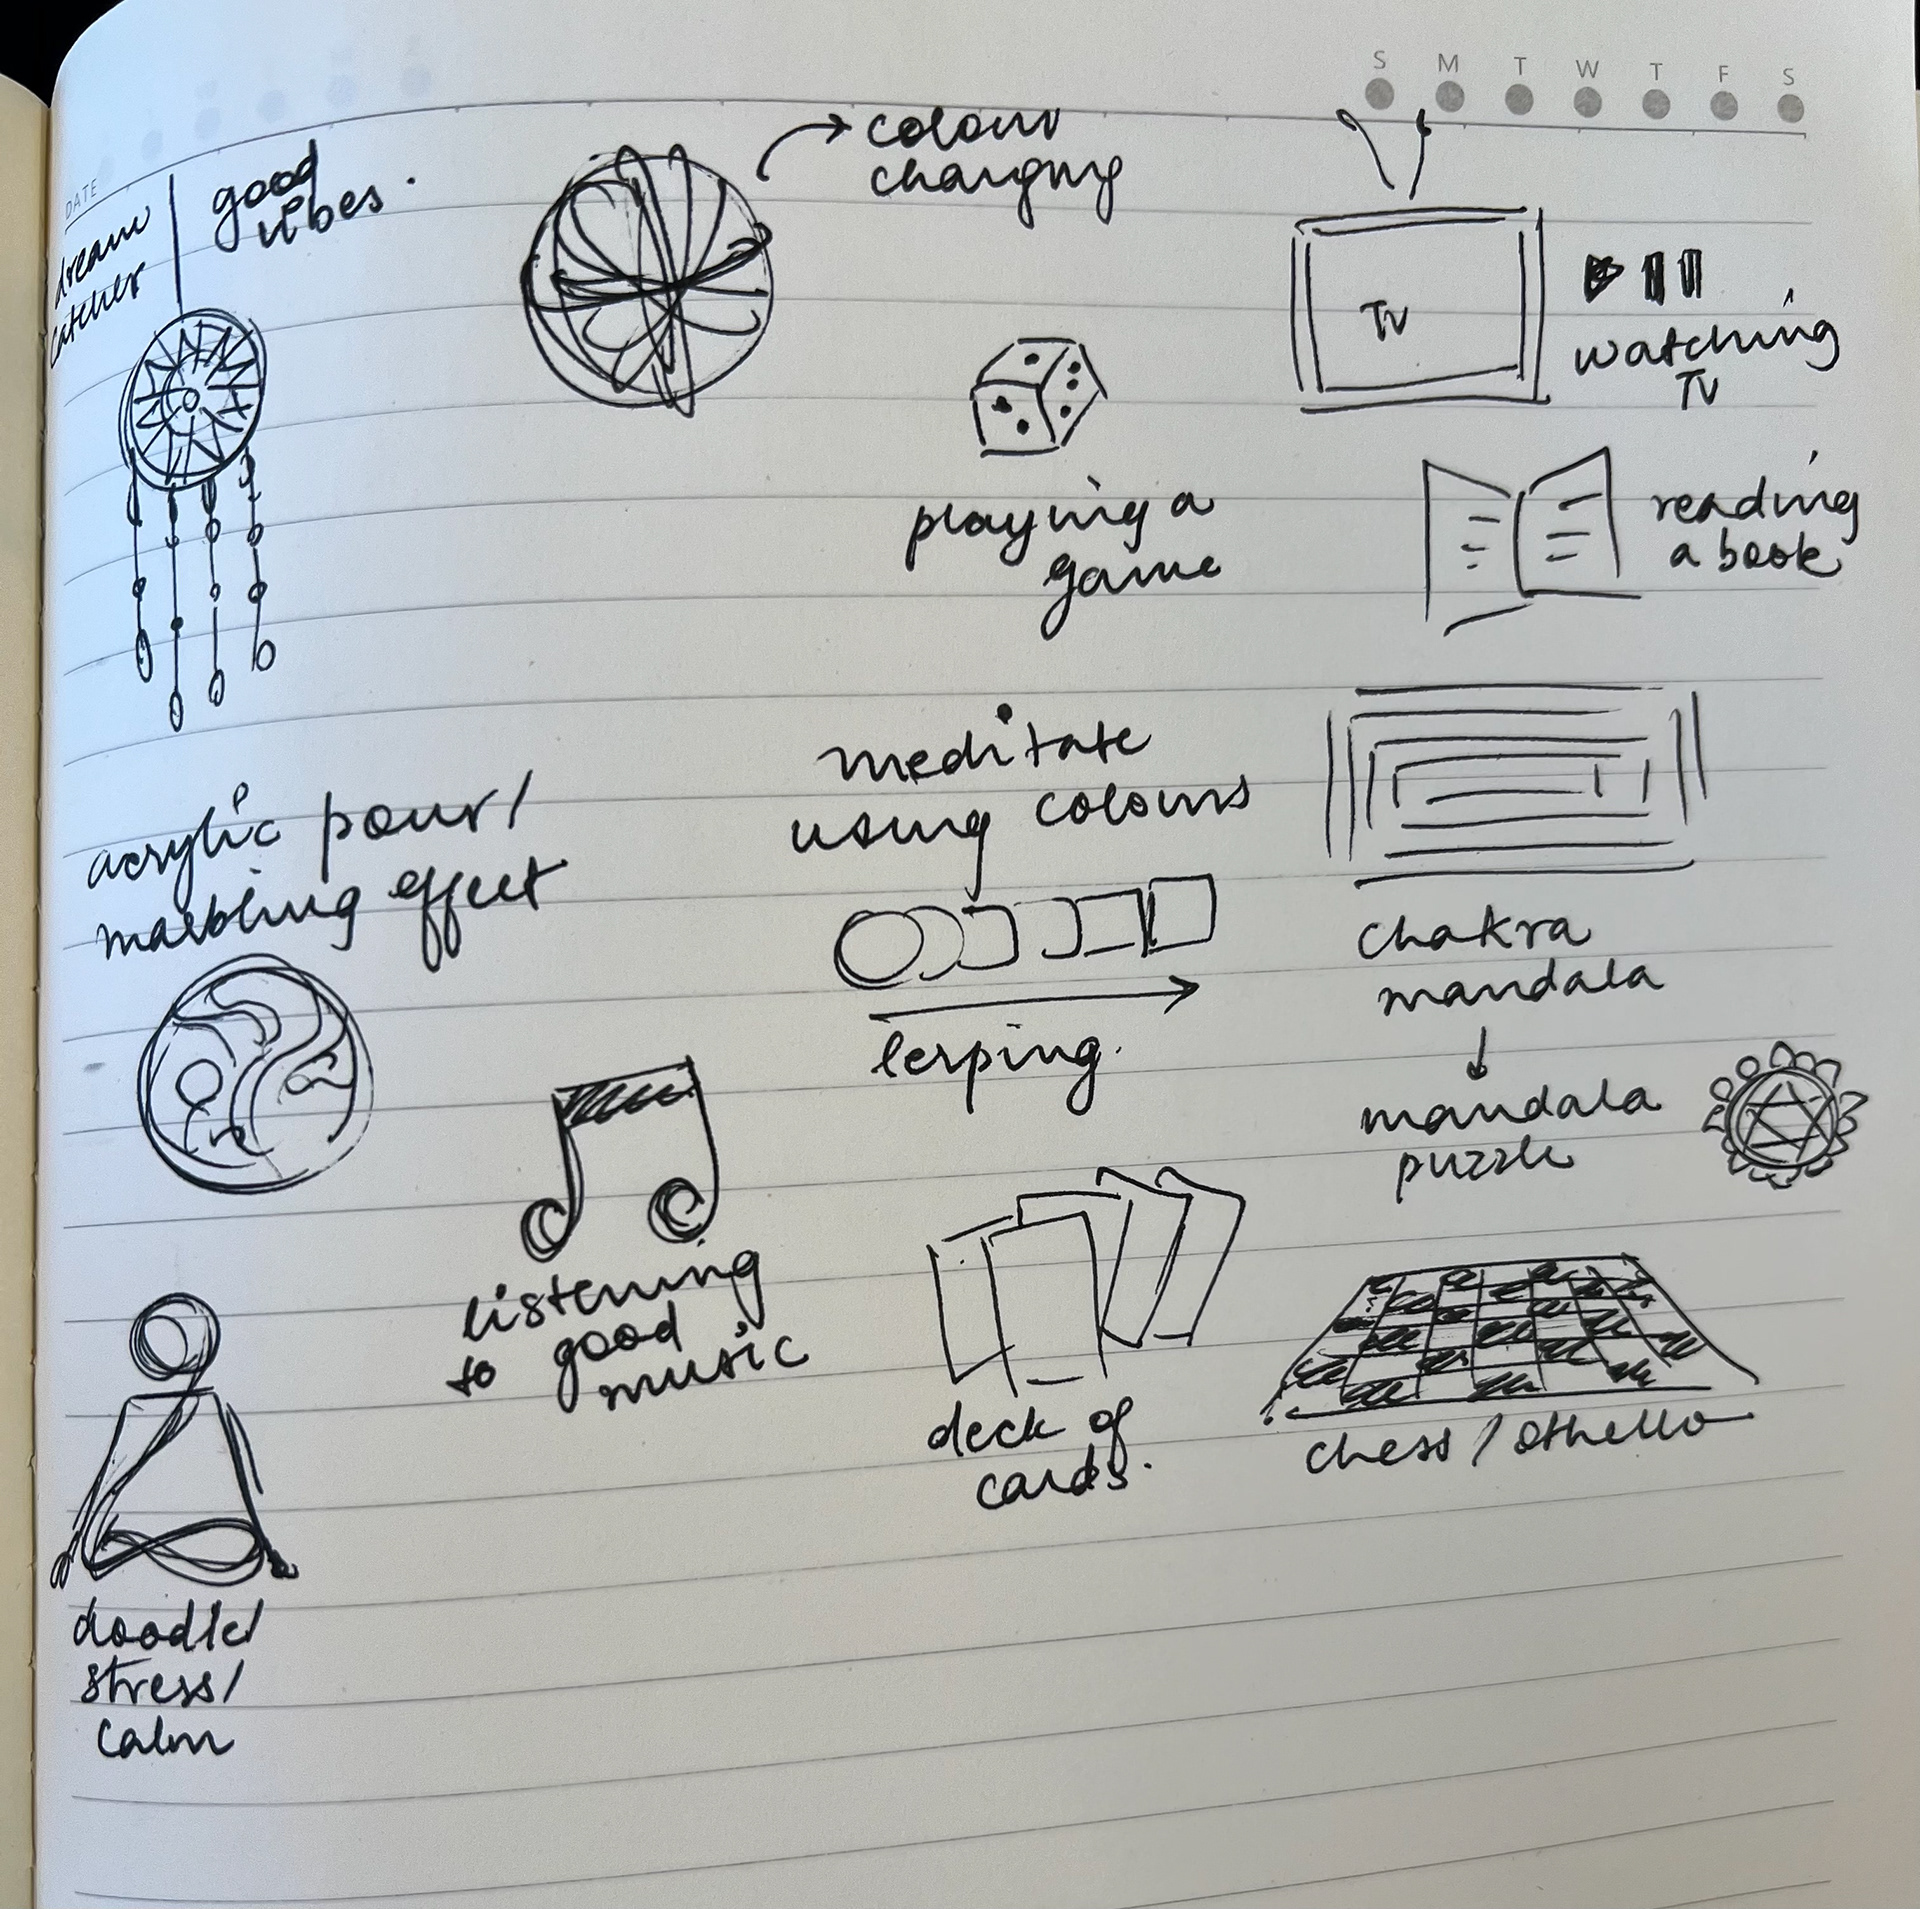 S M T W T F S
DATE
dream
catcher
good
vibes.
colour
changing
TV
watching
TV
playing a
game
reading
a book
acrylic pour/
marbling effect
meditate
using colours
lerping.
chakra
mandala
mandala
puzzle
listening
to good
music
deck of
cards.
chess / othello
doodle/
stress/
calm